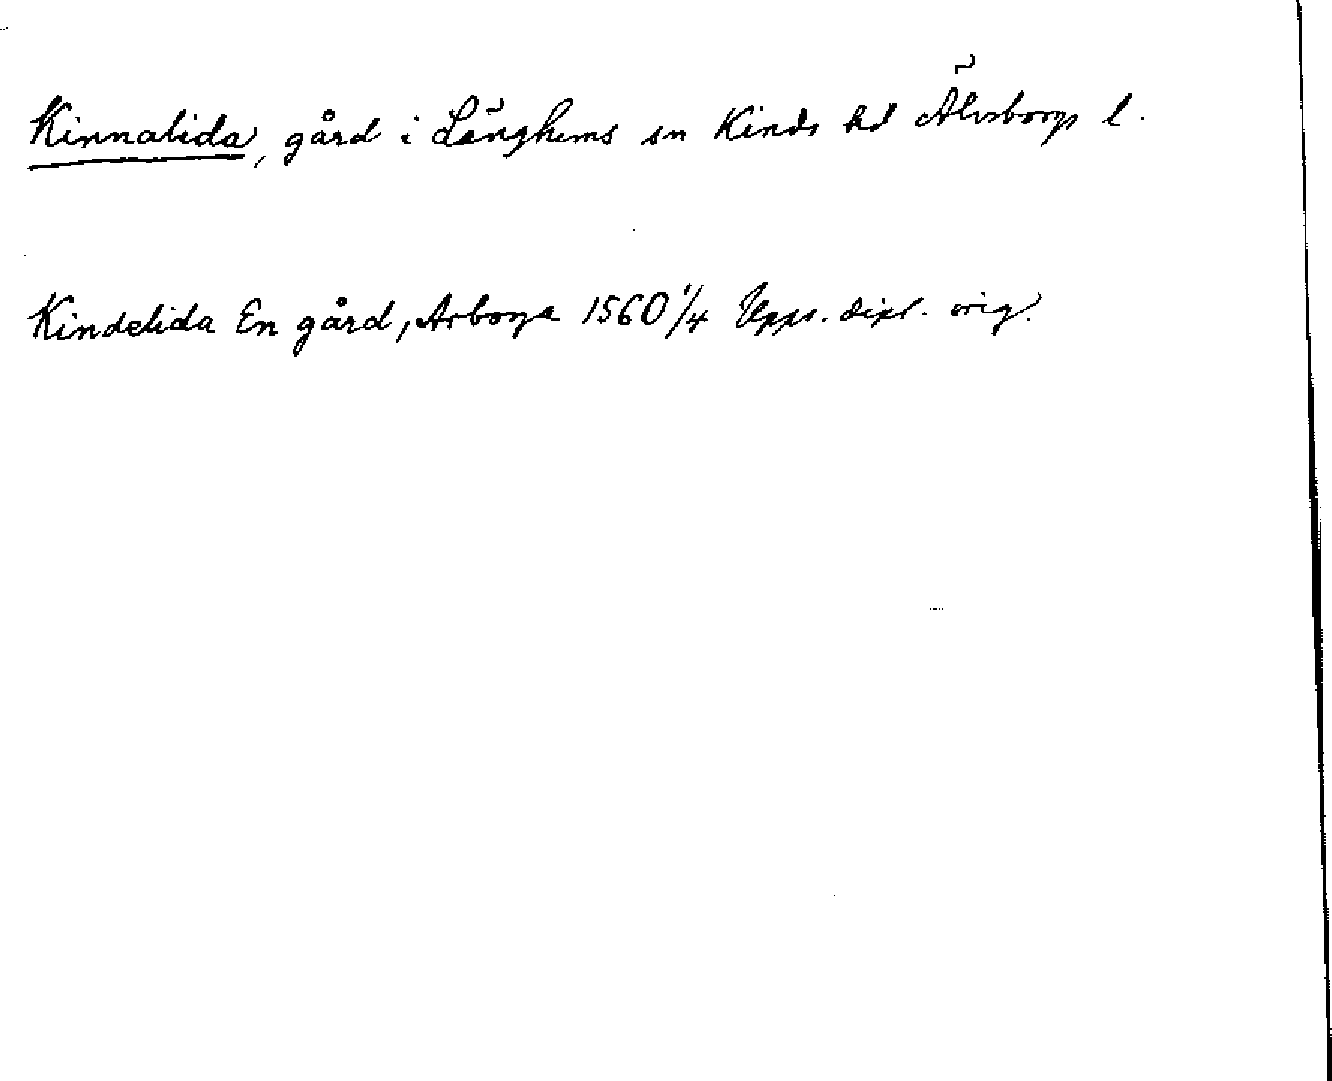 Kinnalida, gård i Länghems sn Kinds hd Älvsborgs l.
Kindelida En gård, Arboga 1560 1/4 Upps. dipl. orig.